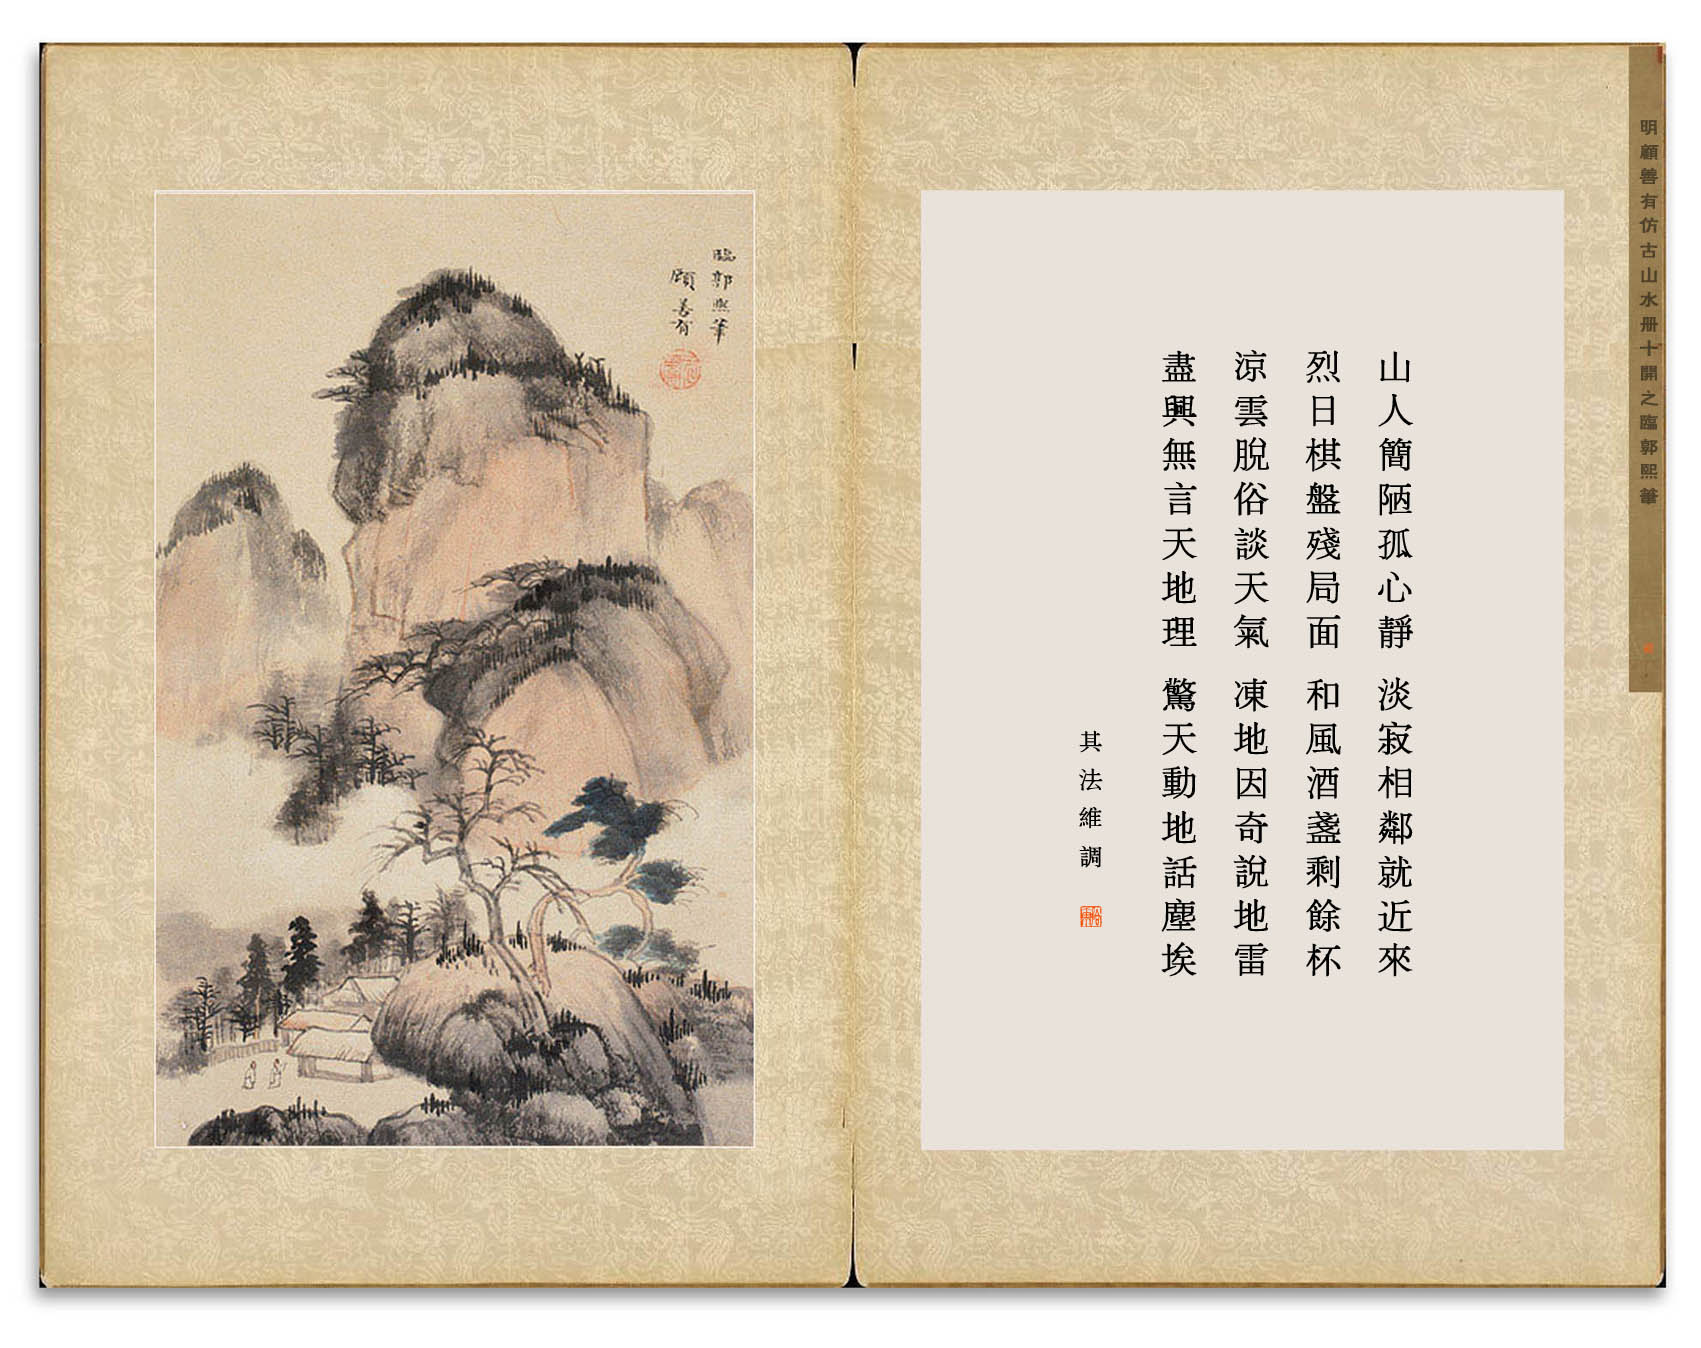 明顧善有仿古山水册十開之臨郭熙筆
山人簡陋孤心靜 淡寂相鄰就近來
烈日棋盤殘局面 和風酒盞剩餘杯
涼雲脫俗談天氣 凍地因奇說地雷
盡興無言天地理 驚天動地話塵埃
其法維調
臨郭熙筆
顧善有